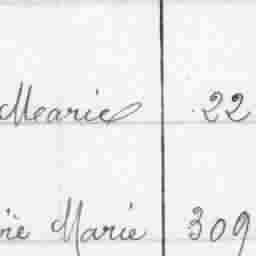 Mearie 22
rie Marie 309